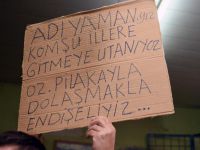 ADIYAMAN.lıyız
KOMŞU İLLERE
GİTMEYE UTANIYOZ
02. PİLAKAYLA
DOLAŞMAKLA
ENDİŞELİYİZ...